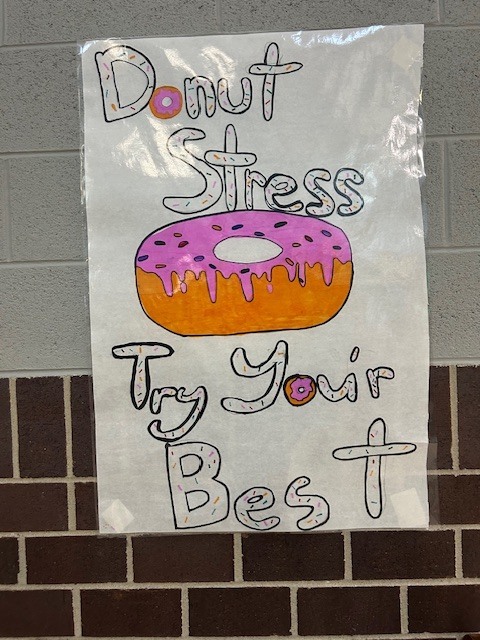 Donut
Stress
Try Your
Best